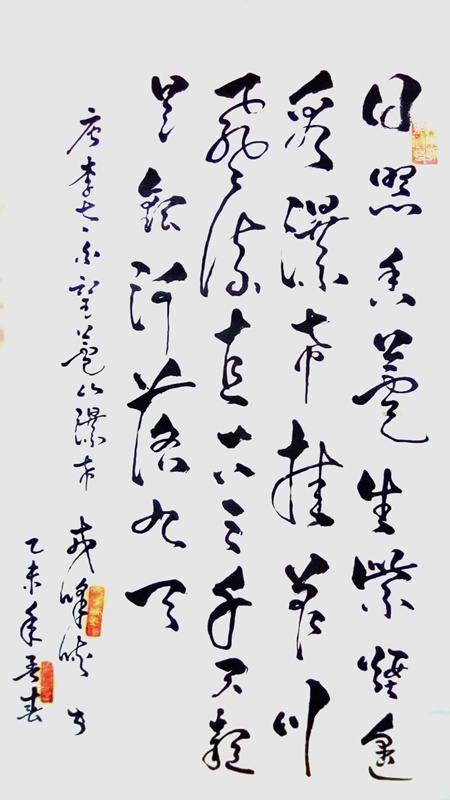 日照香蘆生紫煙遙
看瀑布挂前川
飛流直下三千尺疑
是銀河落九天
唐李太白望蘆山瀑布 书
乙未年春